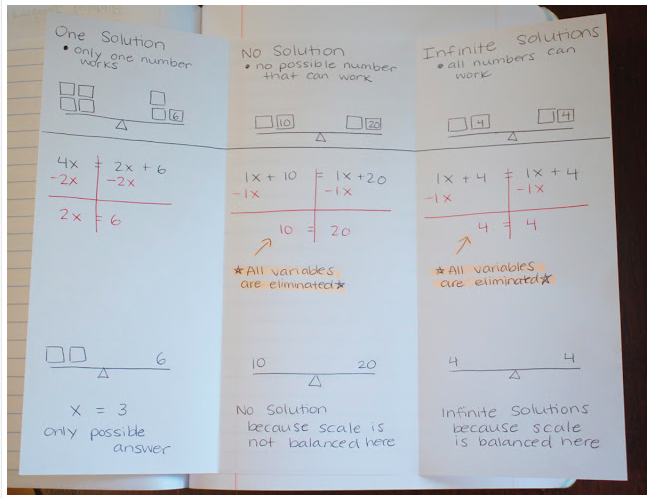 One Solution
• only one number
works
6
4x = 2x + 6
-2x -2x
2x = 6
6
x = 3
only possible
answer
No Solution
• no possible number
that can work
10 20
1x + 10 = 1x + 20
-1x -1x
10 = 20
★ All variables
are eliminated ★
10 20
No Solution
because scale is
not balanced here
Infinite Solutions
• all numbers can
work
4 4
1x + 4 = 1x + 4
-1x -1x
4 = 4
★ All variables
are eliminated ★
4 4
Infinite Solutions
because scale
is balanced here